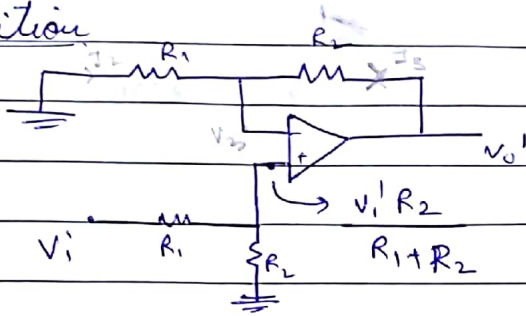 ition
R₁ R₂
I₃
-
+
V₀'
Vi'R₂
R₁+R₂
Vi R₁
R₂